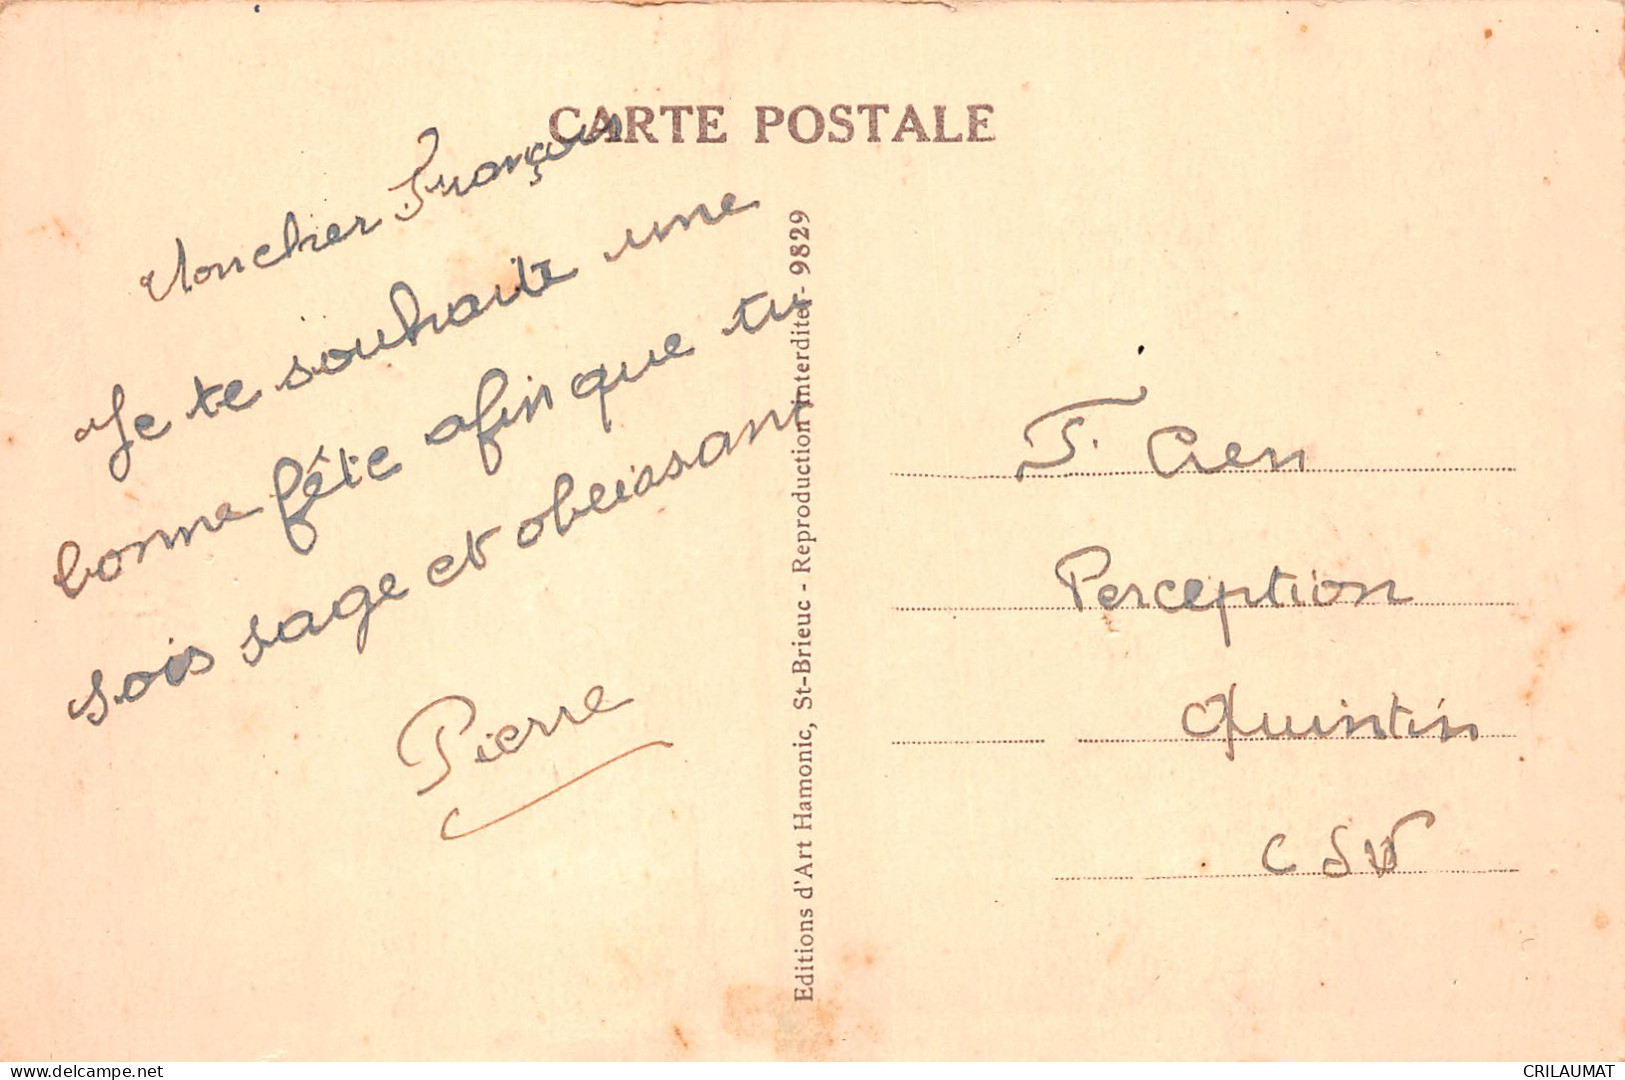 CARTE POSTALE
Moncher François
Je te souhaite une
bonne fête afin que tu
sois sage et obeissant
Pierre
Editions d'Art Hamonic, St-Brieuc - Reproduction interdite - 9829
Perception
Quintin
www.delcampe.net
CRILAUMAT